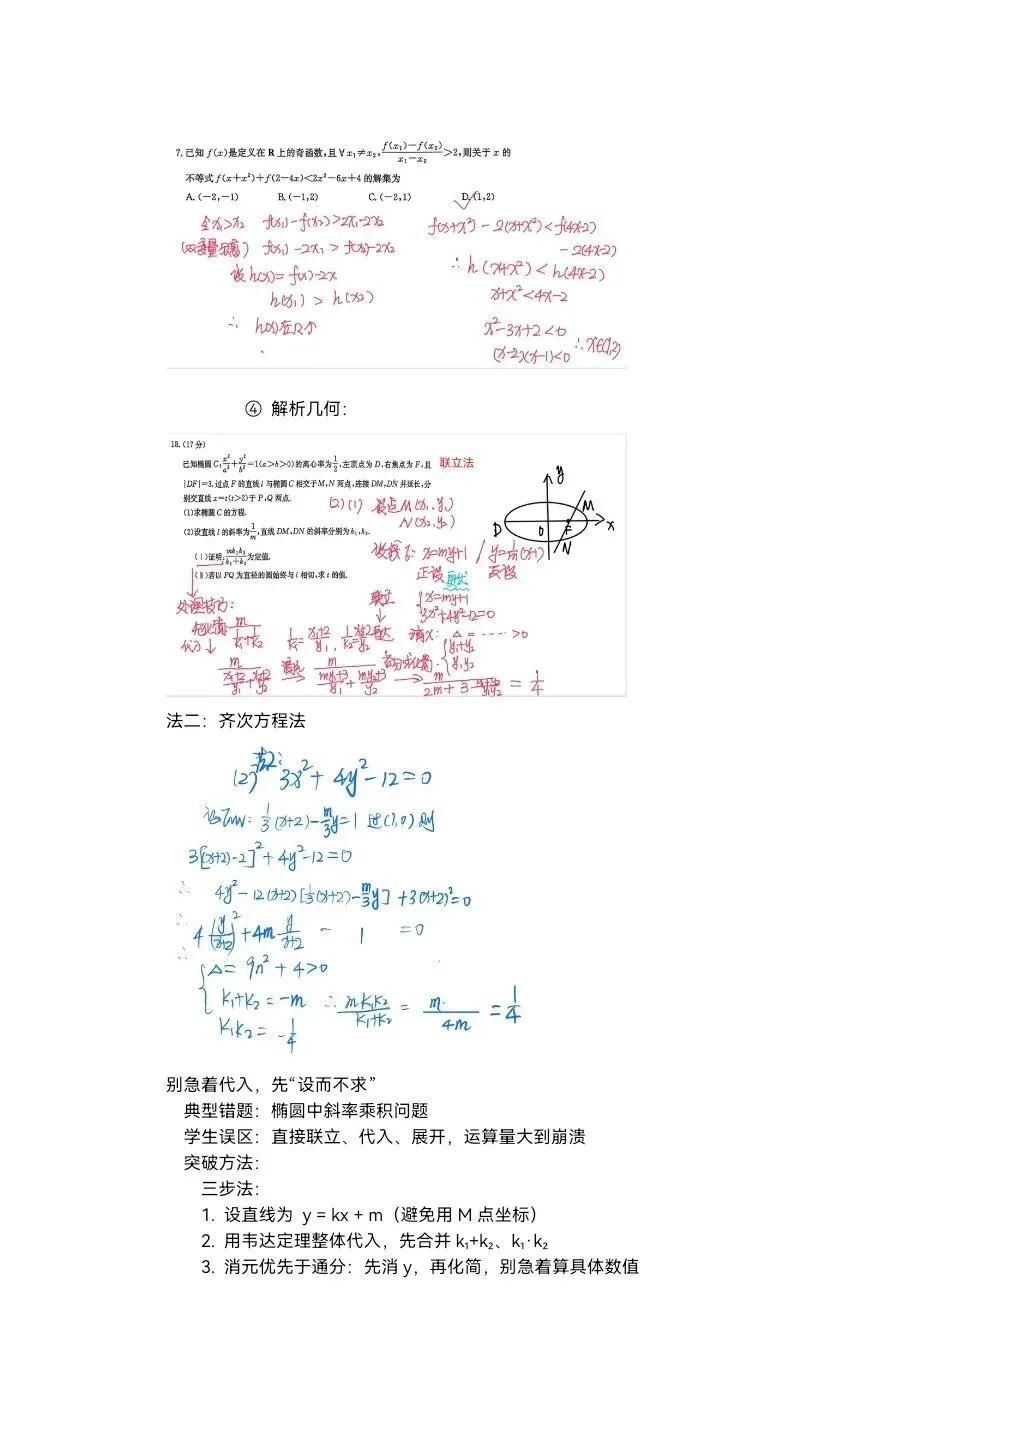 7.已知 f(x)是定义在 R 上的奇函数,且∀x₁≠x₂,\frac{f(x₁)-f(x₂)}{x₁-x₂}>2,则关于 x 的
不等式 f(x+x²)+f(2-4x)<2x²-6x+4 的解集为
A.(-2,-1) B.(-1,2) C.(-2,1) D.(1,2)
令x₁>x₂ f(x₁)-f(x₂)>2x₁-2x₂
f(x₁)-2x₁>f(x₂)-2x₂
设h(x)=f(x)-2x
h(x₁)>h(x₂)
∴ h(x)在R个
f(x+x²)-2(x+x²)<f(4x-2)
-2(4x-2)
∴h(x+x²)<h(4x-2)
x+x²<4x-2
x²-3x+2<0
(x-2)(x-1)<0 ∴x∈(1,2)
④ 解析几何:
18.(17 分)
已知椭圆 C:\frac{x²}{a²}+\frac{y²}{b²}=1(a>b>0)的离心率为\frac{1}{2},左顶点为 D,右焦点为 F,且
|DF|=3.过点 F 的直线 l 与椭圆 C 相交于 M,N 两点,连接 DM,DN 并延长,分
别交直线 x=t(t>2)于 P,Q 两点.
(1)求椭圆 C 的方程.
(2)设直线 l 的斜率为\frac{1}{m},直线 DM,DN 的斜率分别为 k₁,k₂.
(ⅰ)证明:\frac{mk₁k₂}{k₁+k₂}为定值.
(ⅱ)若以 PQ 为直径的圆始终与 l 相切,求 t 的值.
联立法
y
M
D
O
F
x
N
(2)(1) 设点M(x₁,y₁)
N(x₂,y₂)
x=my+1 / y=\frac{1}{m}(x-1)
正设 反设
联立 {x=my+1
3x²+4y²-12=0
处理技巧:
\frac{m}{\frac{1}{k₁}+\frac{1}{k₂}}
\frac{1}{k₁}=\frac{x₁+2}{y₁}, \frac{1}{k₂}=\frac{x₂+2}{y₂}
消x: Δ=……>0
{y₁+y₂
y₁y₂
代入↓
\frac{m}{\frac{x₁+2}{y₁}+\frac{x₂+2}{y₂}} → \frac{m}{\frac{my₁+3}{y₁}+\frac{my₂+3}{y₂}} → \frac{m}{2m+3·\frac{y₁+y₂}{y₁y₂}} = \frac{1}{4}
法二:齐次方程法
(2) 法2: 3x²+4y²-12=0
设lMN: \frac{1}{3}(x+2)-\frac{m}{3}y=1 过(1,0) 则
3[(x+2)-2]²+4y²-12=0
∴ 4y²-12(x+2)[\frac{1}{3}(x+2)-\frac{m}{3}y]+3(x+2)²=0
∴ 4(\frac{y}{x+2})²+4m\frac{y}{x+2} - 1 =0
∴ {Δ=9n²+4>0
k₁+k₂=-m ∴\frac{mk₁k₂}{k₁+k₂}=\frac{m·}{4m}=\frac{1}{4}
k₁k₂=-\frac{1}{4}
别急着代入，先“设而不求”
典型错题：椭圆中斜率乘积问题
学生误区：直接联立、代入、展开，运算量大到崩溃
突破方法：
三步法：
1. 设直线为 y = kx + m（避免用 M 点坐标）
2. 用韦达定理整体代入，先合并 k₁+k₂、k₁·k₂
3. 消元优先于通分：先消 y，再化简，别急着算具体数值